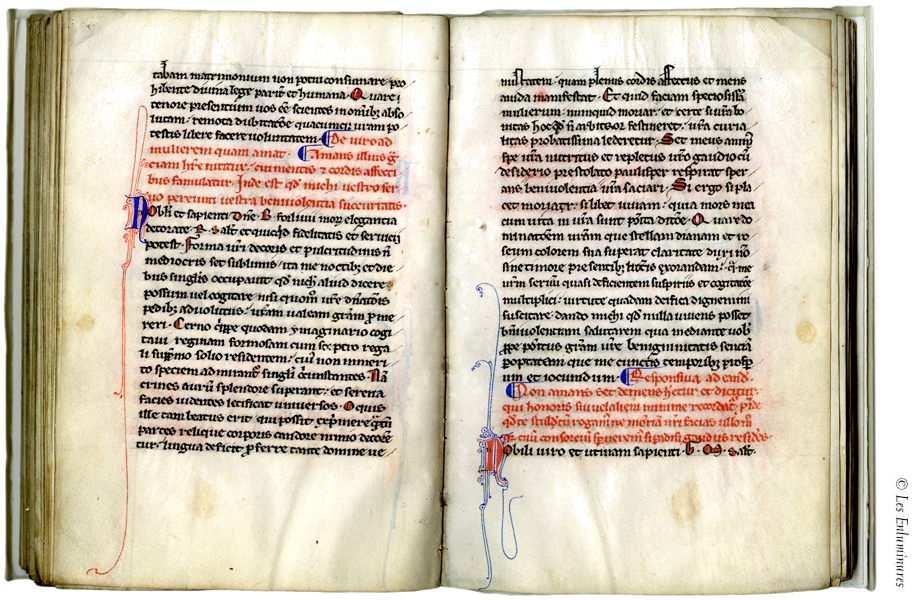 tabam matrimonium non potui consumare pro
hibente divina lege pariter et humana. Quare
tenore presentium vos esse scientes in omnibus abso
lutam. remota dubitatione quacumque viram po
testis libere facere voluntatem. De viro ad
mulierem quam amat. Amans illius gra
ciam habere nititur. cui mentis et cordis affecti
bus famulatur. Inde est quod michi vestro ser
vo pereunti vestra benivolentia succuratis.
Nobili et sapienti domine B forlivii morum elegantia
decorate R. salutem et quicquid fidelitatis et servicii
potest. Forma vestri decoris et pulcritudinis non
mediocris set sublimis. ita me noctibus et die
bus singulis occupavit. quod nichil aliud dicere
possum vel cogitare. nisi quomodo vestre dominationis
pedibus advolutus. vestram valeam gratiam prome
reri. Cerno quippe quodam ymaginario cogi
tatu reginam formosam cum sceptro rega
li supremo solio residentem. cuius non inmeri
to speciem admirantur singuli circumstantes. Nam
crines auri splendore superant. et serena
facies videntes letificat universos. O quis
ille tam beatus erit. qui possit exprimere quantum
partes relique corporis candore nimio decoren
tur. lingua deficit proferre tante domine ve
nustatem. quam plenus cordis affectus et mens
avida manifestat. Et quid faciam speciosissima
mulierum. numquid moriar. et certe summa bo
nitas hoc quod non arbitror festineret. vestra curia
litas probatissima lederetur. Set meus animus
spe vestra nutritus et repletus vestro gaudio cum
desiderio prestolato paulisper respirat sper
ans benivolentia vestra saciari. Si ergo si pla
cet moriatur. si libet vivam. quia mors mea
cum vita in vestra sunt posita dicione. Quare do
minationem vestram que stellam dianam et ro
seum colorem sua superat claritate duxi non
sine timore presentibus litteris exorandam. quod me
vestrum servum quasi deficientem suspiriis et cogitatione
multiplici. virtute quadam deifica dignemini
suscitare. dando michi quod milla vivens posset
benivolentiam salutarem qua mediante vobis
prope positus gratiam vestre benignitatis senciam
peroptatam que me cunctis temporibus prosper
um et iocundum. Responsiva ad eandem.
Non amans set demens habetur et dicitur.
qui honoris sui velamen minime recordatur. proinde
quod te stultum rogamine moneria ne facias illorum
quod tuum consorcium spernerem si paradisi gaudiis resideres
Nobili viro et utinam sapienti. b. M. salutem.